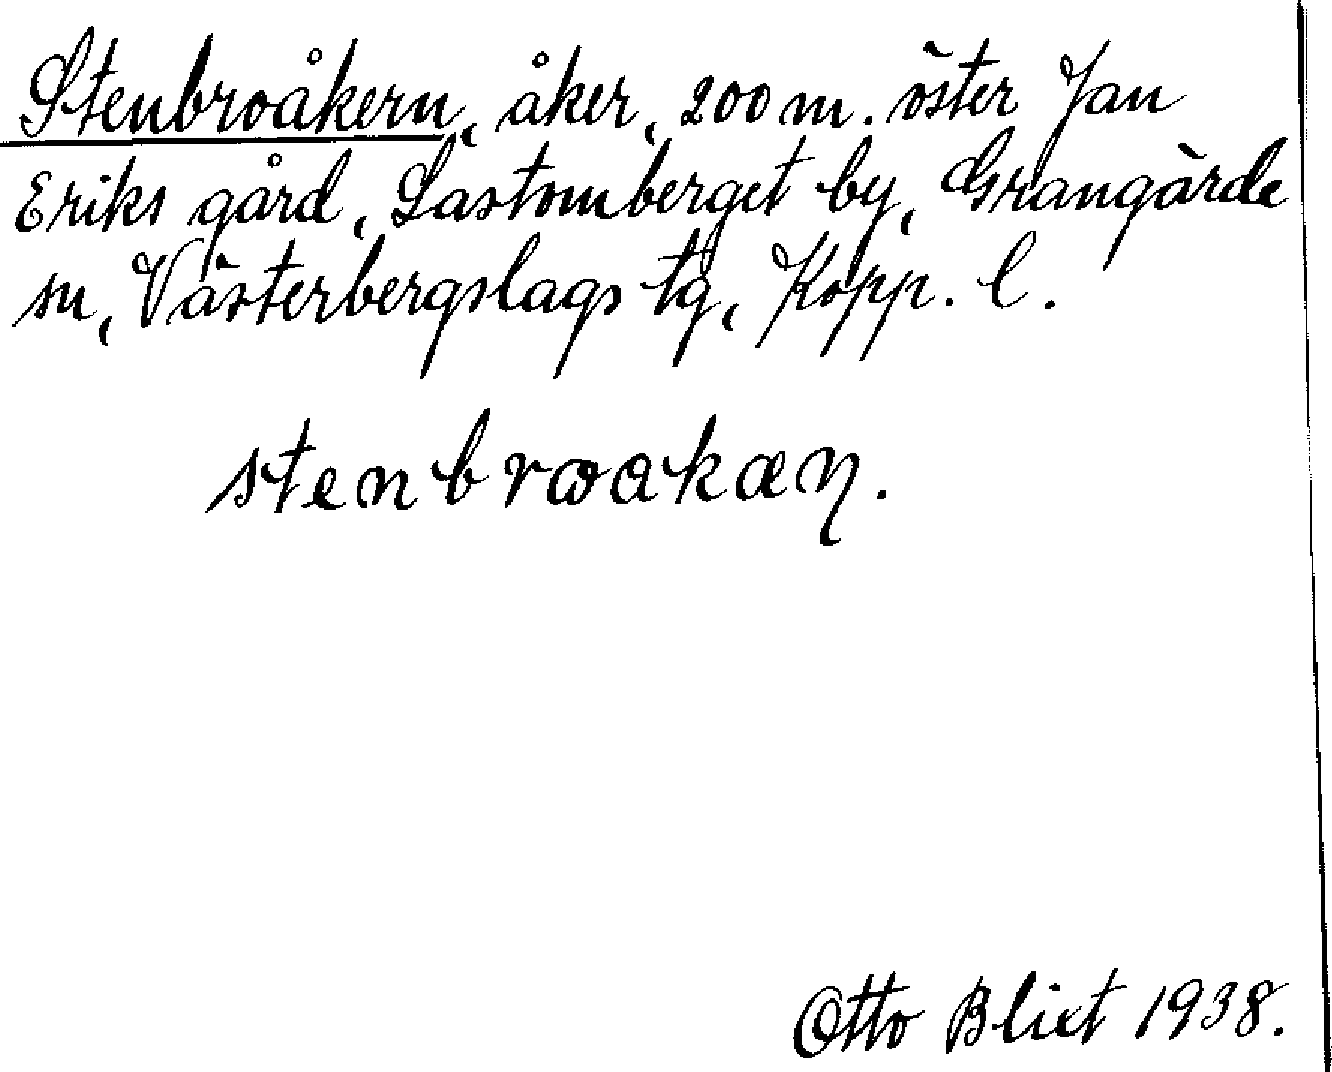 Stenbroåkern, åker, 200 m. öster Jan
Eriks gård, Lastomberget by, Grangärde
sn, Västerbergslags tg, Kopp. l.
stenbrωakæn.
Otto Blixt 1938.